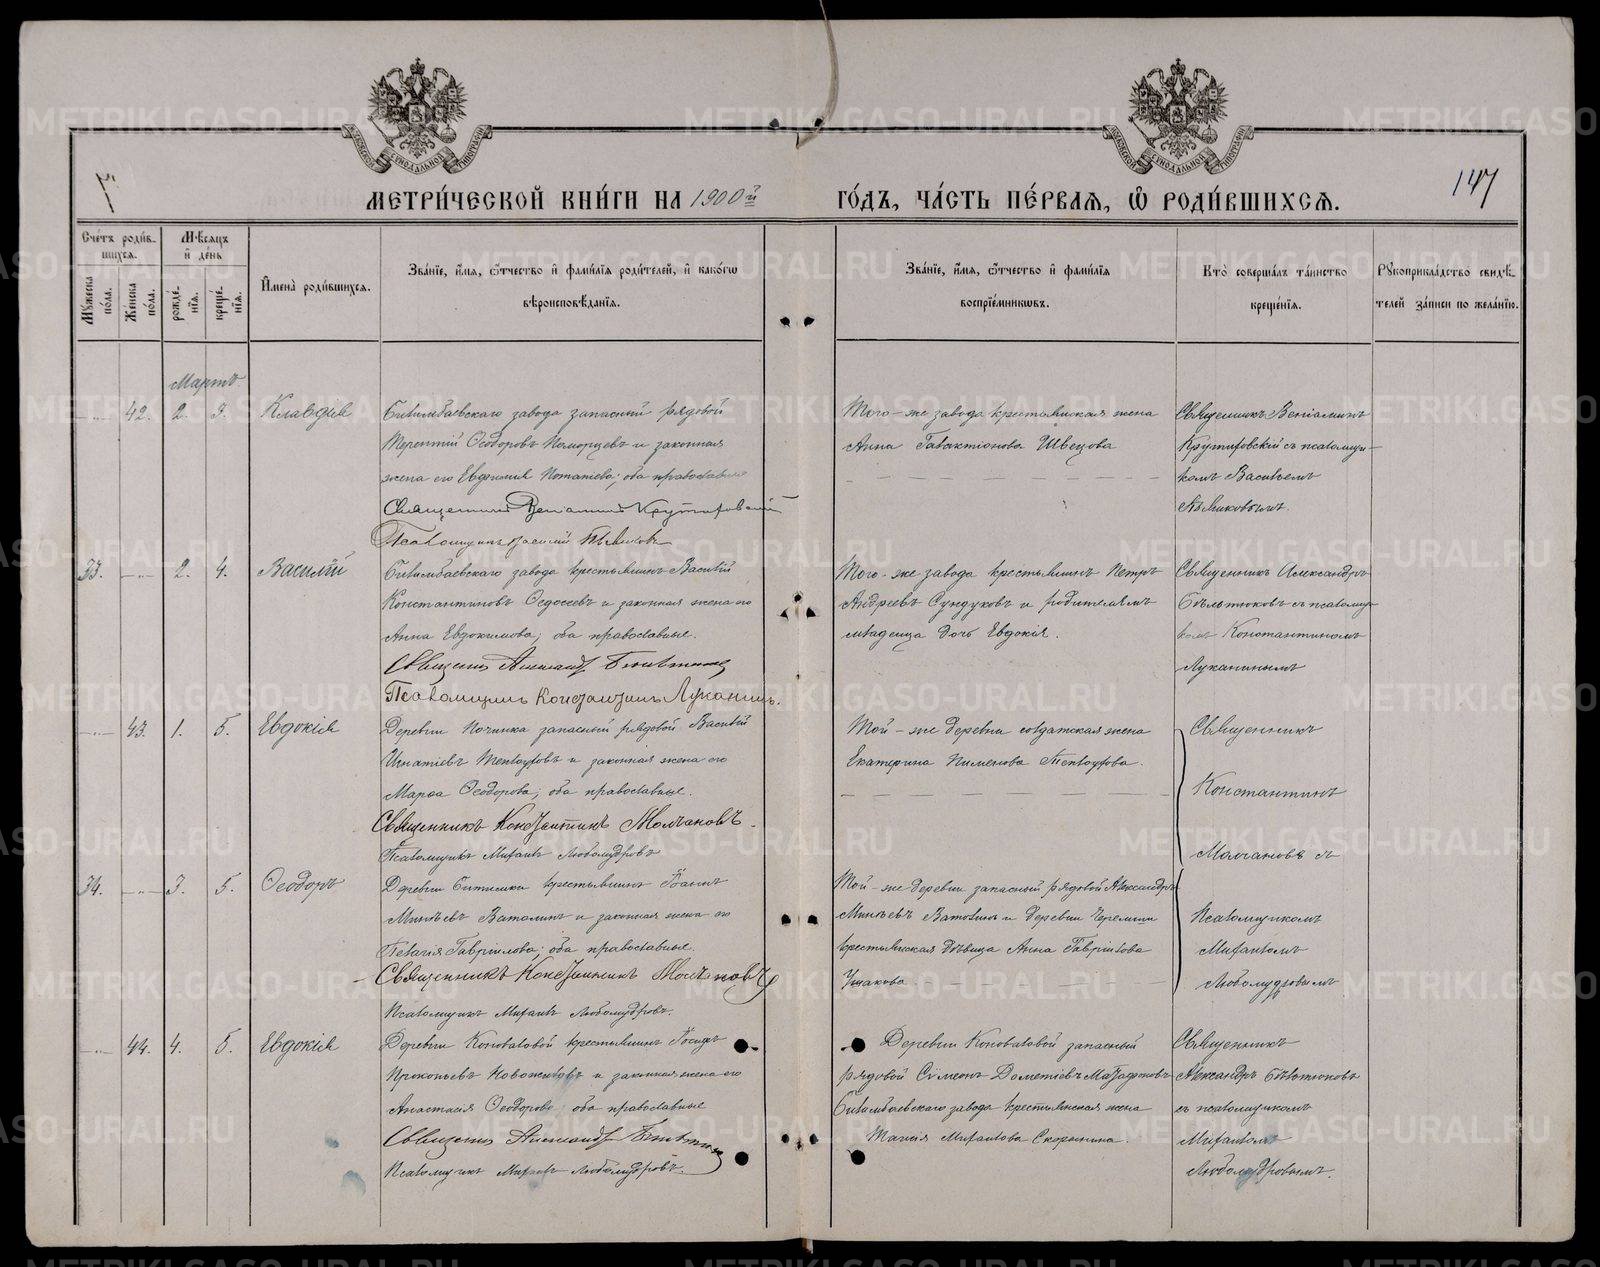 7
147
МЕТРИ́ЧЕСКОЙ КНИ́ГИ НА 1900й ГО́ДЪ, ЧА́СТЬ ПЕ́РВАЯ, Ѿ РОДИ́ВШИХСЯ.
Сче́тъ роди́вшихся.
Му́жеска по́ла.
Же́нска по́ла.
Мѣ́сяцъ и де́нь
рожде́нїя.
креще́нїя.
Имена̀ роди́вшихся.
Зва́нїе, и́мя, ѻ́тчество и фами́лїя роди́телей, и како́гѡ
вѣроисповѣ́данїя.
Зва́нїе, и́мя, ѻ́тчество и фами́лїя
воспрїе́мникѡвъ.
Кто̀ соверша́лъ та́инство
креще́нїя.
Рꙋкоприкла́дство свидѣ́телей за́писи по жела́нїю.
Мартъ.
42. 2. 3. Клавдія
Билимбаевскаго завода запасный рядовой
Терентій Ѳеодоровъ Поморцевъ и законная
жена его Евдокимія Потапіева; оба православные
Священникъ Веніаминъ Крутиховскій
Псаломщикъ Василій
Того-же завода крестьянская жена
Анна Галактіонова Швецова
Священникъ Веніаминъ
Крутиховскій съ псаломщи-
комъ Василіемъ
33. 2. 4. Василій
Билимбаевскаго завода крестьянинъ Василій
Константиновъ Ѳедосеевъ и законная жена его
Анна Евдокимова; оба православные.
Священникъ Александръ
Псаломщикъ Константинъ Луканинъ.
Того-же завода крестьянинъ Петръ
Андреевъ Сундуковъ и родителямъ
младенца дочь Евдокія.
Священникъ Александръ
Бѣльтюковъ съ псаломщи-
комъ Константиномъ
Луканинымъ
43. 1. 5. Евдокія
Деревни Починка запасный рядовой Василій
Игнатіевъ Теплоуховъ и законная жена его
Марѳа Ѳеодорова; оба православные.
Священникъ Константинъ Молчановъ.
Псаломщикъ Михаилъ Любомудровъ
Той-же деревни солдатская жена
Екатерина Пименова Теплоухова.
Священникъ
Константинъ
Молчановъ съ
34. 3. 5. Ѳеодоръ
Деревни Битимки крестьянинъ Іоаннъ
Минѣевъ Ватолинъ и законная жена его
Пелагія Гавріилова; оба православные.
Священникъ Константинъ Молчановъ
Псаломщикъ Михаилъ Любомудровъ.
Той-же деревни запасный рядовой Александръ
Минѣевъ Ватолинъ и деревни Черемши
крестьянская дѣвица Анна Гавріилова
Ушакова
Псаломщикомъ
Михаиломъ
Любомудровымъ
44. 4. 5. Евдокія
Деревни Коноваловой крестьянинъ Іосифъ
Прокопьевъ Новожиловъ и законная жена его
Анастасія Ѳеодорова; оба православные
Священникъ Александръ
Псаломщикъ Михаилъ Любомудровъ.
Деревни Коноваловой запасный
рядовой Сѵмеонъ Дометіевъ
Билимбаевскаго завода крестьянская жена
Таисія Михаилова Скорынина.
Священникъ
Александръ Бѣльтюковъ
съ псаломщикомъ
Михаиломъ
Любомудровымъ.
METRIKI.GASO-URAL.RU